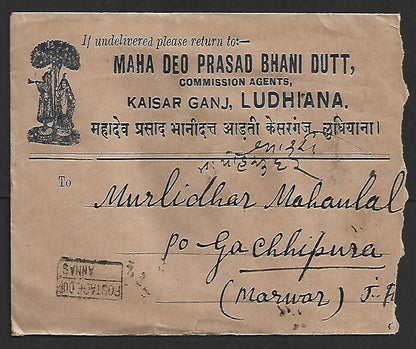 If undelivered please return to:—
MAHA DEO PRASAD BHANI DUTT,
COMMISSION AGENTS,
KAISAR GANJ, LUDHIANA.
महादेव प्रसाद भानीदत्त आड़ती केसरगंज, लुधियाना।
To
Murlidhar Mahaulal
Po Gachhipura
(Marwar) J. R
POSTAGE DUE
ANNAS